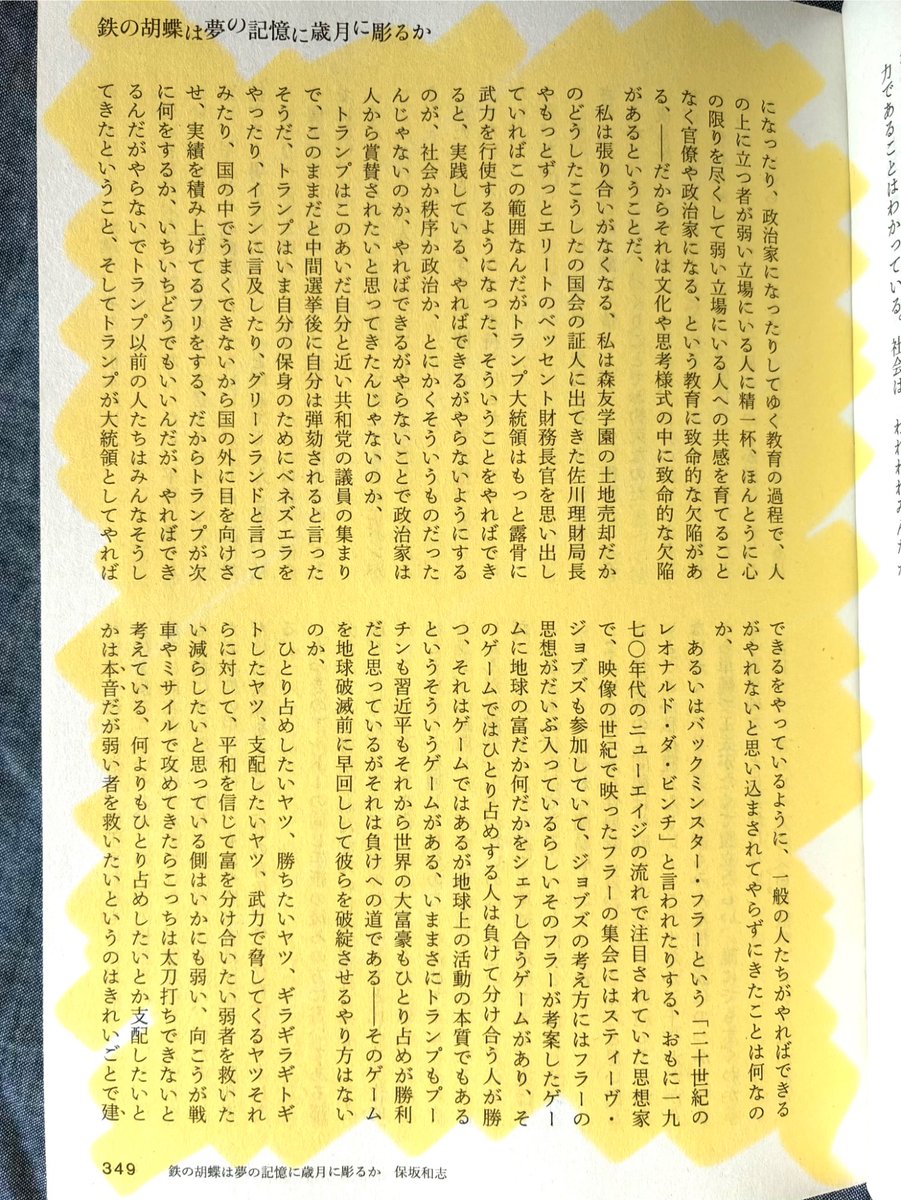 鉄の胡蝶は夢の記憶に歳月に彫るか
になったり、政治家になったりしてゆく教育の過程で、人
の上に立つ者が弱い立場にいる人に精一杯、ほんとうに心
の限りを尽くして弱い立場にいる人への共感を育てること
なく官僚や政治家になる、という教育に致命的な欠陥があ
る、――だからそれは文化や思考様式の中に致命的な欠陥
があるということだ、
私は張り合いがなくなる、私は森友学園の土地売却だか
のどうしたこうしたの国会の証人に出てきた佐川理財局長
やもっとずっとエリートのベッセント財務長官を思い出し
ていればこの範囲なんだがトランプ大統領はもっと露骨に
武力を行使するようになった、そういうことをやればでき
ると、実践している、やればできるがやらないようにする
のが、社会か秩序か政治か、とにかくそういうものだった
んじゃないのか、やればできるがやらないことで政治家は
人から賞賛されたいと思ってきたんじゃないのか、
トランプはこのあいだ自分と近い共和党の議員の集まり
で、このままだと中間選挙後に自分は弾劾されると言った
そうだ、トランプはいま自分の保身のためにベネズエラを
やったり、イランに言及したり、グリーンランドと言って
みたり、国の中でうまくできないから国の外に目を向けさ
せ、実績を積み上げてるフリをする、だからトランプが次
に何をするか、いちいちどうでもいいんだが、やればでき
るんだがやらないでトランプ以前の人たちはみんなそうし
てきたということ、そしてトランプが大統領としてやれば
できるをやっているように、一般の人たちがやればできる
がやれないと思い込まされてやらずにきたことは何なの
か、
あるいはバックミンスター・フラーという「二十世紀の
レオナルド・ダ・ビンチ」と言われたりする、おもに一九
七〇年代のニューエイジの流れで注目されていた思想家
で、映像の世紀で映ったフラーの集会にはスティーヴ・
ジョブズも参加していて、ジョブズの考え方にはフラーの
思想がだいぶ入っているらしいそのフラーが考案したゲー
ムに地球の富だか何だかをシェアし合うゲームがあり、そ
のゲームではひとり占めする人は負けて分け合う人が勝
つ、それはゲームではあるが地球上の活動の本質でもある
というそういうゲームがある、いままさにトランプもプー
チンも習近平もそれから世界の大富豪もひとり占めが勝利
だと思っているがそれは負けへの道である――そのゲーム
を地球破滅前に早回しして彼らを破綻させるやり方はない
のか、
ひとり占めしたいヤツ、勝ちたいヤツ、ギラギラギトギ
トしたヤツ、支配したいヤツ、武力で脅してくるヤツそれ
らに対して、平和を信じて富を分け合いたい弱者を救いた
い減らしたいと思っている側はいかにも弱い、向こうが戦
車やミサイルで攻めてきたらこっちは太刀打ちできないと
考えている、何よりもひとり占めしたいとか支配したいと
かは本音だが弱い者を救いたいというのはきれいごとで建
349 鉄の胡蝶は夢の記憶に歳月に彫るか 保坂和志
力であることはわかっている。社会は、